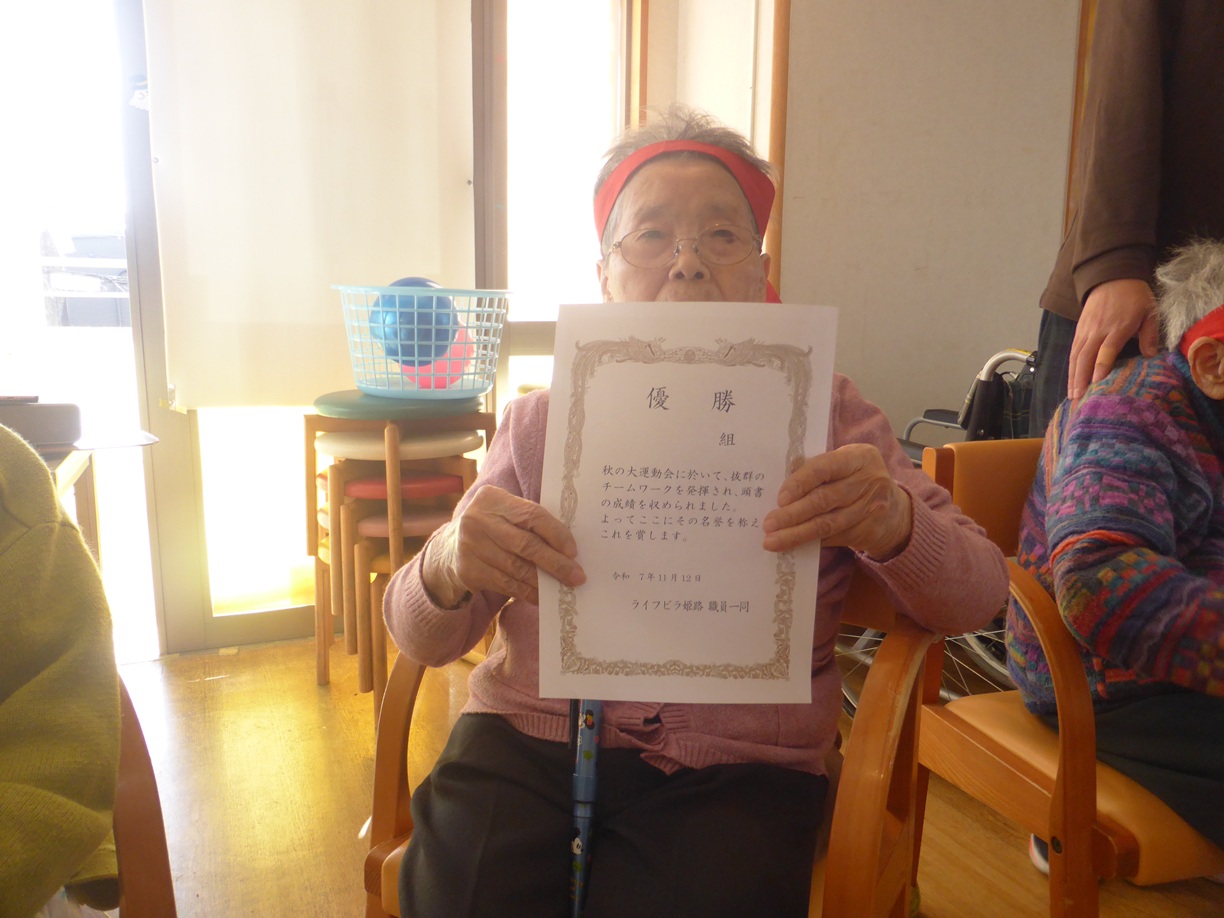 優勝
組
秋の大運動会に於いて、抜群の
チームワークを発揮され、頭書
の成績を収められました。
よってここにその名誉を称え
これを賞します。
令和 7年11月12日
ライフビラ姫路 職員一同